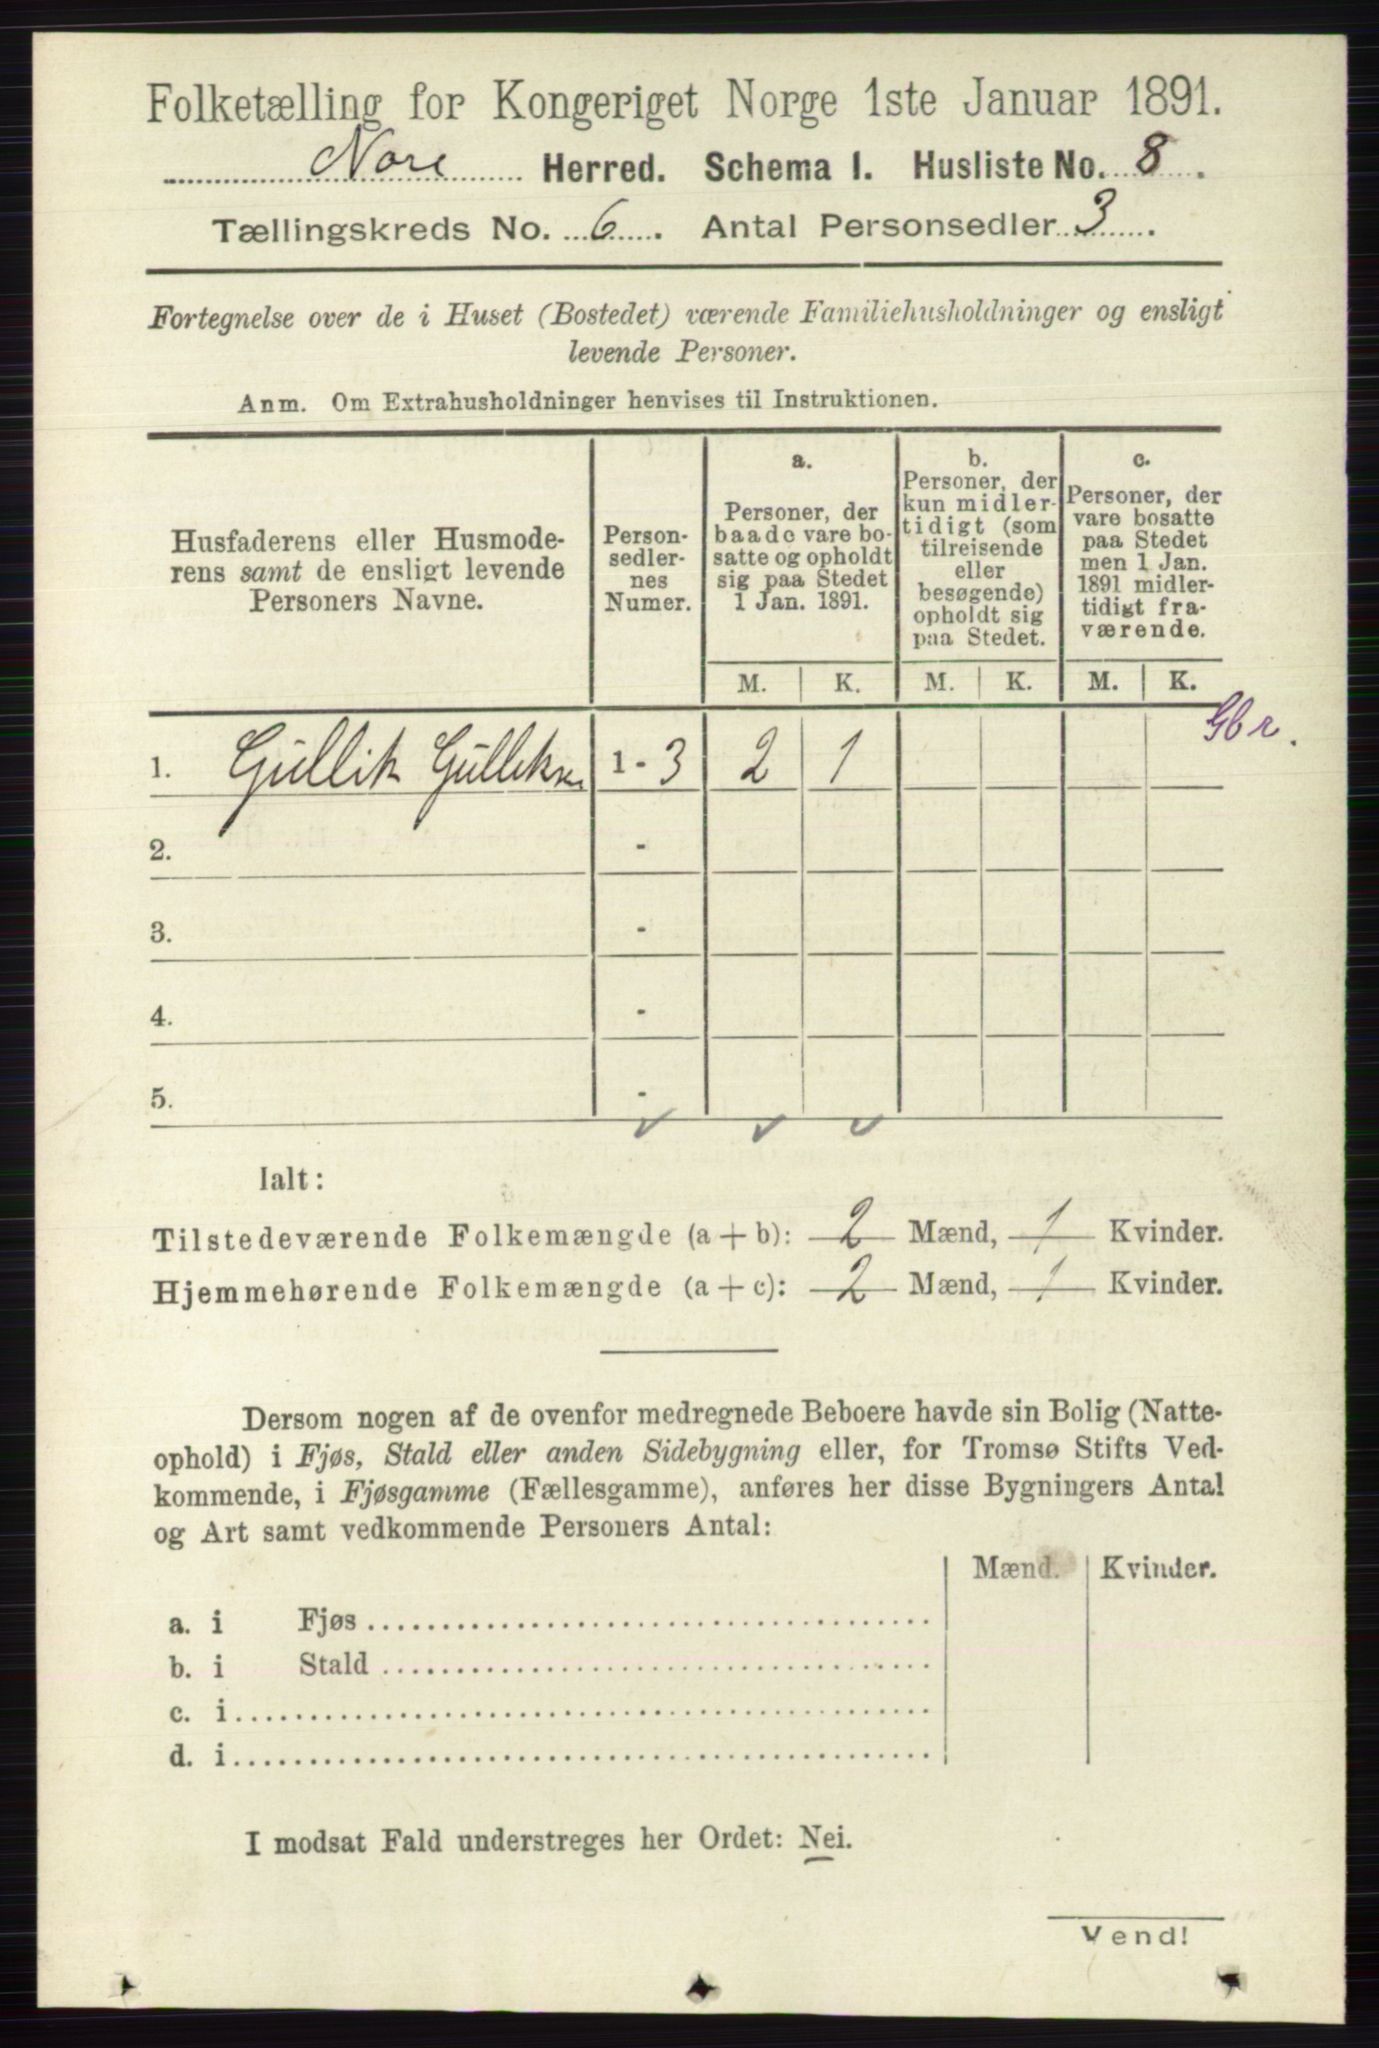 Folketælling for Kongeriget Norge 1ste Januar 1891.
Nore Herred. Schema I. Husliste No. 8.
Tællingskreds No. 6. Antal Personsedler 3.
Fortegnelse over de i Huset (Bostedet) værende Familiehusholdninger og ensligt
levende Personer.
Anm. Om Extrahusholdninger henvises til Instruktionen.
Husfaderens eller Husmode-
rens samt de ensligt levende
Personers Navne.
Person-
sedler-
nes
Numer.
a.
Personer, der
baade vare bo-
satte og opholdt
sig paa Stedet
1 Jan. 1891.
b.
Personer, der
kun midler-
tidigt (som
tilreisende
eller
besøgende)
opholdt sig
paa Stedet.
c.
Personer, der
vare bosatte
paa Stedet
men 1 Jan.
1891 midler-
tidigt fra-
værende.
M. K. M. K. M. K.
Gbr.
1. Gullik Gulliksen 1 - 3 2 1
2. -
3. -
4. -
5. -
Ialt:
Tilstedeværende Folkemængde (a + b): 2 Mænd, 1 Kvinder.
Hjemmehørende Folkemængde (a + c): 2 Mænd, 1 Kvinder.
Dersom nogen af de ovenfor medregnede Beboere havde sin Bolig (Natte-
ophold) i Fjøs, Stald eller anden Sidebygning eller, for Tromsø Stifts Ved-
kommende, i Fjøsgamme (Fællesgamme), anføres her disse Bygningers Antal
og Art samt vedkommende Personers Antal:
Mænd. Kvinder.
a. i Fjøs
b. i Stald
c. i
d. i
I modsat Fald understreges her Ordet: Nei.
Vend!